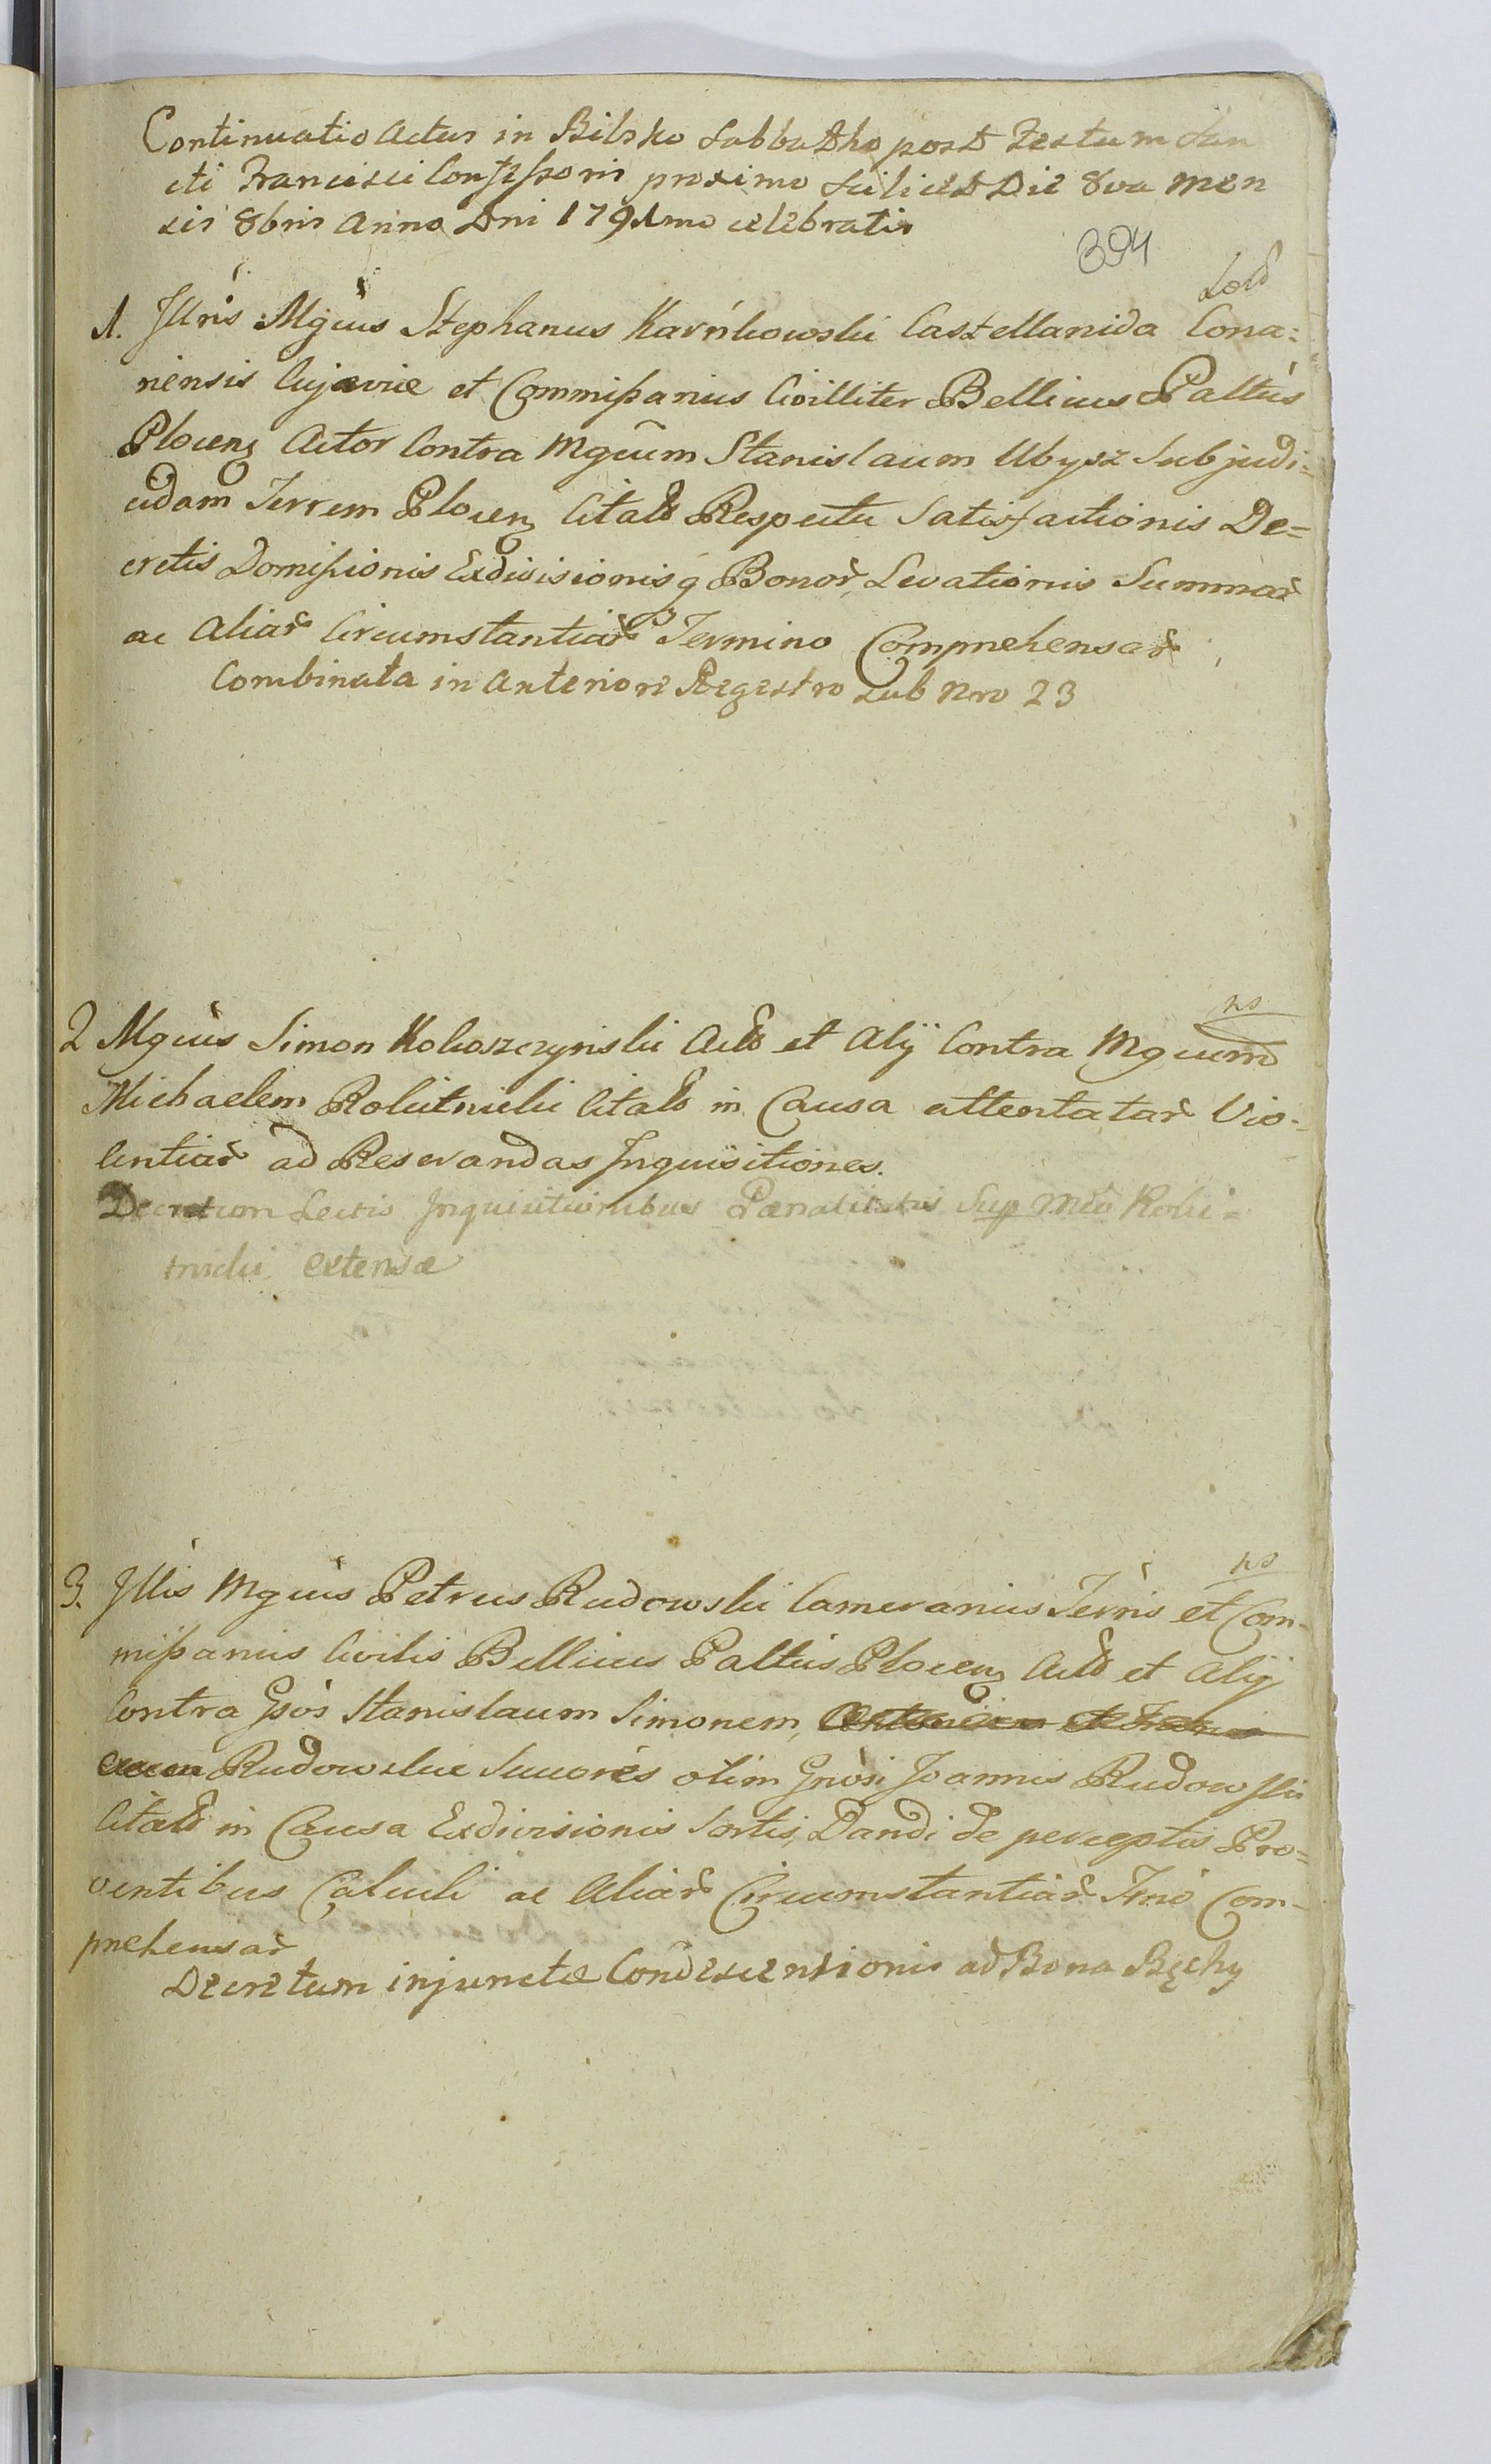 Continuatio actus in Bilsko Sabbatho post Festum San
cti Francisci Confessoris proximo scilicet Die 8va men
sis 8bris Anno Dni 1791mo celebratis
394
1. Illris Mgcus Stephanus Karńkowski Castellanida Cona=
riensis Cujaviæ et Commissarius Civilliter Bellicus Pallus
Plocens Actor Contra Mgcum Stanislaum Ubysz Subjudi=
cidam Terrem Plocens Citat Respectu Satisfactionis De=
cretis Domissionis Exdivisionisq Bonor Levationis Summar
ac Aliar Circumstantiar Termino Comprehensar
Combinata in Anteriore Regestro sub Nro 23
ns
2 Mgcus Simon Kokoszczynski Act et Alij Contra Mgcum
Michaelem Rokitnicki Citat in Causa attentatar Vio-
lentiar ad Reserandas Inquisitiones.
Decretum Lectis Inquisitionibus Pænalitatis Sup Mco Roki=
tnicki extensæ
ns
3. Illis Mgcus Petrus Rudowski Camerarius Terris et Com-
missarius Civilis Bellicus Paltus Plocens Act et Alij
Contra Gsos Stanislaum Simonem,
Rudowskie Succores olim Gnosi Joannis Rudowski
Citat in Causa Exdivisionis Sortis, Dandi de perceptis Pro=
ventibus Calculi ac Aliar Circumstantiar Tmo Com-
prehensar
Decretum injunctæ Condescensionis ad Bona Bęchy